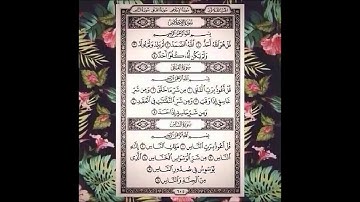 سورة الإخلاص
بسم الله الرحمن الرحيم
قل هو الله أحد ١ الله الصمد ٢ لم يلد ولم يولد ٣
ولم يكن له كفوا أحد ٤
سورة الفلق
بسم الله الرحمن الرحيم
قل أعوذ برب الفلق ١ من شر ما خلق ٢ ومن شر
غاسق إذا وقب ٣ ومن شر النفاثات في العقد ٤
ومن شر حاسد إذا حسد ٥
سورة الناس
بسم الله الرحمن الرحيم
قل أعوذ برب الناس ١ ملك الناس ٢ إله
الناس ٣ من شر الوسواس الخناس ٤ الذي
يوسوس في صدور الناس ٥
من الجنة والناس ٦
٦٠٤